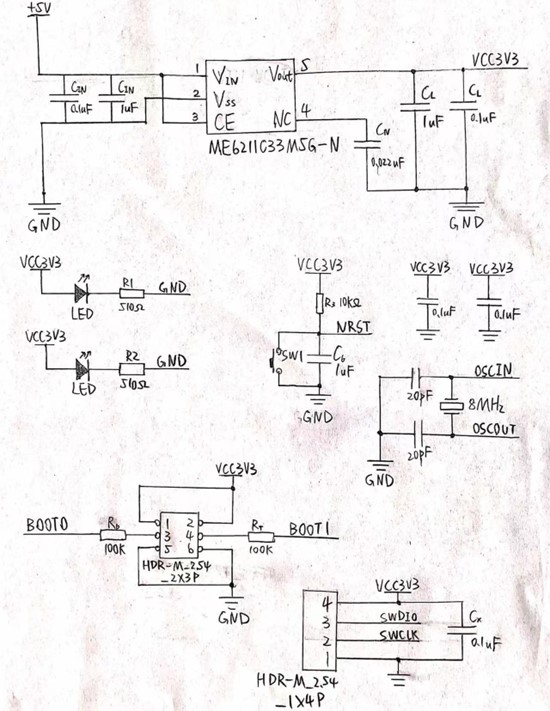 +5V
CIN
0.1uF
CIN
1uF
GND
1
2
3
VIN
VSS
CE
Vout
NC
5
4
ME6211C33M5G-N
CN
0.022uF
CL
1uF
CL
0.1uF
VCC3V3
GND
VCC3V3
LED
R1
510Ω
GND
VCC3V3
LED
R2
510Ω
GND
VCC3V3
R3 10KΩ
NRST
SW1
C6
1uF
GND
VCC3V3
0.1uF
VCC3V3
0.1uF
OSCIN
20pF
8MHz
OSCOUT
20pF
GND
VCC3V3
BOOT0
100K
1 2
3 4
5 6
100K
BOOT1
HDR-M_2.54
_2X3P
GND
VCC3V3
4
3
2
1
SWDIO
SWCLK
Cx
0.1uF
HDR-M_2.54
_1X4P